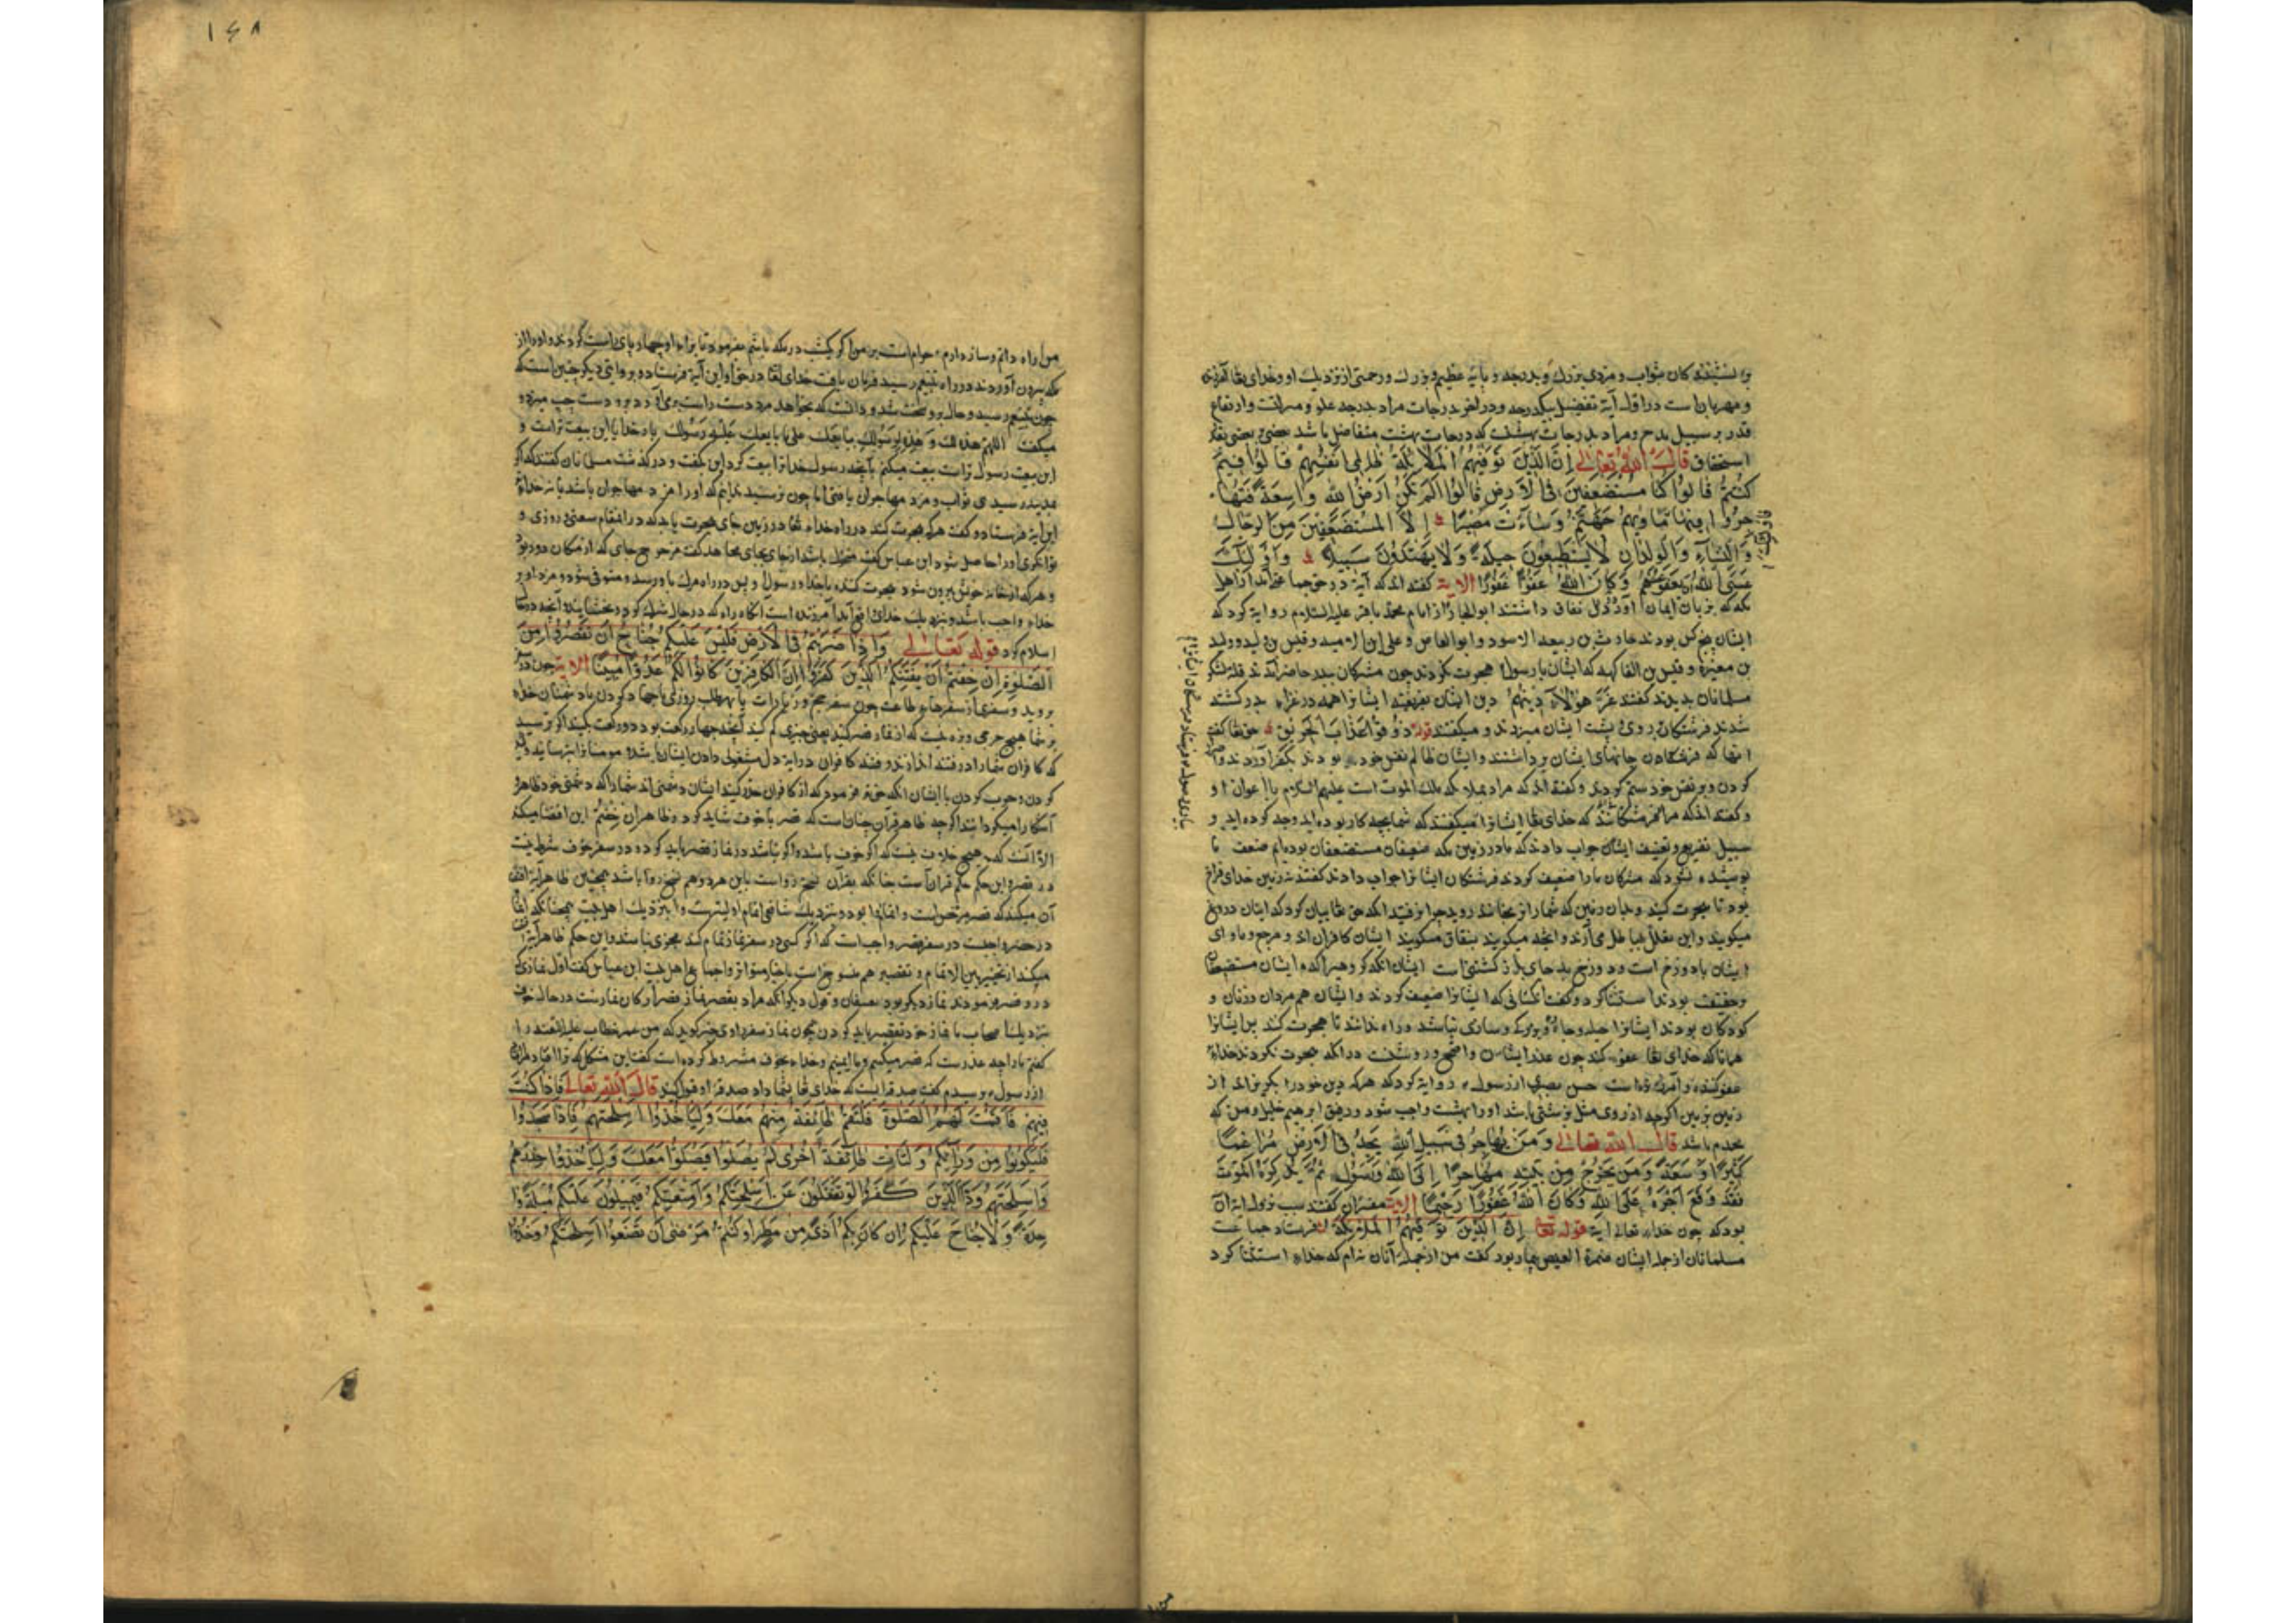 بر نشستگان ثواب و مزدی بزرك و بدرجه و پایه عظیم و بزرك و رحمتی از نزدیك او و خدای تعا آمرزنده
و مهربان است در اول آیة تفضیل بیکدرجه و در آخر بدرجات مراد بدرجه علو و منزلت و ارتفاع
قدر بر سبیل مدح و مراد بدرجات درجات بهشت که درجات بهشت متفاضل باشد بعضی بر بعضی بقدر
استحقاق قال الله تعالی إِنَّ الَّذِينَ تَوَفَّيٰهُمُ الْمَلَائِكَةُ ظَالِمِي أَنْفُسِهِمْ قَالُوا فِيمَ
كُنْتُمْ قَالُوا كُنَّا مُسْتَضْعَفِينَ فِي الْأَرْضِ قَالُوا أَلَمْ تَكُنْ أَرْضُ اللَّهِ وَاسِعَةً فَتُهَا
جِرُوا فِيهَا فَأُولَٰئِكَ مَأْوَيٰهُمْ جَهَنَّمُ وَسَاءَتْ مَصِيرًا إِلَّا الْمُسْتَضْعَفِينَ مِنَ الرِّجَالِ
وَالنِّسَاءِ وَالْوِلْدَانِ لَا يَسْتَطِيعُونَ حِيلَةً وَلَا يَهْتَدُونَ سَبِيلًا فَأُولَٰئِكَ
عَسَى اللَّهُ أَنْ يَعْفُوَ عَنْهُمْ وَكَانَ اللَّهُ عَفُوًّا غَفُورًا الایة گفته اند که آیة در حق جماعتی آمد از اهل
مکه که بزبان ایمان آوردند و در دل نفاق داشتند ابو الجارود از امام محمد باقر علیه السلام روایة کرد که
ایشان پنج کس بودند حارث بن ربیعه الاسود و ابو العاص و علی بن الامیه و قیس بن ولید و ولید
بن مغیره و قیس بن الفاکهه که ایشان با رسول هجرت نکردند چون مشرکان ببدر حاضر آمدند قلة لشکر
مسلمانان بدیدند گفتند غَرَّ هٰؤُلَاءِ دِينُهُمْ دین ایشان بفریفت ایشانرا همه در غزاء بدر کشته
شدند فرشتگان بر روی و پشت ایشان میزدند و میگفتند قوله ذُوقُوا عَذَابَ الْحَرِيقِ حق تعا گفت
آنها که فرشتگان جانهای ایشان برداشتند و ایشان ظالم نفس خود بودند بکفر آوردند
کردن و بر نفس خود ستم کردند و گفته اند که مراد بملائکه ملك الموت است علیهم السلام با اعوان او
و گفته اند که مراد فرشتگانند که خدای تعا ایشانرا میگفتند که شما بچه کار بوده اید و چه کرده اید بر
سبیل تقریع و تعنیف ایشان جواب دادند که ما در زمین مکه ضعیفان مستضعفان بوده ایم ضعف ما
پوشیده نبود که مشرکان ما را ضعیف کردند فرشتگان ایشانرا جواب دادند گفتند نه زمین خدای فراخ
بود تا هجرت کنید و جان زمین که شما را برنجانند روید چرا نرفتید آنکه حق تعا بیان کرد که ایشان دروغ
میگویند و این تعلل بباطل می آرند و آنچه میگویند بنفاق میگویند ایشان کافران اند و مرجع و ماوای
ایشان با دوزخ است و دوزخ بد جای باز گشتنی است ایشان آنکه گروهی را که ایشان مستضعفان
بحقیقت بودند استثنا کرد و گفت الا کسانی که ایشانرا ضعیف کردند و ایشان هم مردان و زنان و
کودکان بودند ایشانرا حیله و چاره و برگ و سازی نباشد و راه ندانند تا هجرت کنند بر ایشانرا
همانا که خدای تعا عفو کند چون عذر ایشان واضح و روشنست در آنکه هجرت نکردند خداء
عفو کننده و آمرزنده است حسن بصری از رسول روایة کرد که هر که دین خود را بگریزاند از
زمین بزمین اگر چه از روی مثل بدستی باشد او را بهشت واجب شود و رفیق ابرهیم خلیل و من که
محمدم باشد قال الله تعالی وَمَنْ يُهَاجِرْ فِي سَبِيلِ اللَّهِ يَجِدْ فِي الْأَرْضِ مُرَاغَمًا
كَثِيرًا وَسَعَةً وَمَنْ يَخْرُجْ مِنْ بَيْتِهِ مُهَاجِرًا إِلَى اللَّهِ وَرَسُولِهِ ثُمَّ يُدْرِكْهُ الْمَوْتُ
فَقَدْ وَقَعَ أَجْرُهُ عَلَى اللَّهِ وَكَانَ اللَّهُ غَفُورًا رَحِيمًا الایة مفسران گفتند سبب نزول ایة آن
بود که چون خداء تعالی ایة قوله تعا إِنَّ الَّذِينَ تَوَفَّيٰهُمُ الْمَلَائِكَةُ بفرستاد جماعت
مسلمانان از جمله ایشان ضمرة العیص بیمار بود گفت من از جمله آنان نه ام که خداء استثنا کرد
من راه دانم و ساز دارم حرام است بر من اگر یکشب در مکه باشم بفرمود تا برای او چهار پای راست کردند و او را از
مکه بیرون آوردند در راه بتنعیم رسید فرمان یافت خدای تعا در حق او این آیة فرستاد و بروایتی دیگر چنین است که
چون بتنعیم رسید و حال برو سخت شد و دانست که بخواهد مرد دست راست بر می آورد و بر دست چپ میزد و
میگفت اللهم هذه لك و هذه لرسولك ابایعك علی ما بایعك علیه رسولك بار خدایا این بیعت تراست و
این بیعت رسول تراست بیعت میکنم بآنچه رسول خدا ترا بیعت کرد این گفت و درگذشت مسلمانان گفتند که اگر
بمدینه رسیدی ثواب و مزد مهاجران یافتی اما چون نرسید ندانیم که او را مزد مهاجران باشد یا نه خداء
این آیة فرستاد و گفت هر که هجرت کند در راه خداء تعا در زمین جای هجرت یابد که در آنمقام سعتی روزی و
توانگری او را حاصل شود ابن عباس گفت تحول باشد از جای بجای مجاهد گفت مزحزح جای که از مکان دور بود
و هر که از خانه خویش بیرون شود هجرت کننده با خدا و رسول و پس در راه مرك باو رسد و متوفی شود مزد او بر
خداء واجب باشد و نزدیك خدای تعا آمرزنده است آنگاه را که در حال شرك کرد و بخشاینده آنچه در حال
اسلام کرد قوله تعالی وَإِذَا ضَرَبْتُمْ فِي الْأَرْضِ فَلَيْسَ عَلَيْكُمْ جُنَاحٌ أَنْ تَقْصُرُوا مِنَ
الصَّلٰوةِ إِنْ خِفْتُمْ أَنْ يَفْتِنَكُمُ الَّذِينَ كَفَرُوا إِنَّ الْكَافِرِينَ كَانُوا لَكُمْ عَدُوًّا مُبِينًا الایة چون در سفر
بروید و سفری از سفرها بطاعت چون سفر حج و زیارات یا بطلب روزی یا جهاد کردن با دشمنان خداء
بر شما هیچ حرجی و بزه نیست که از نماز قصر کنید یعنی چیزی کم کنید آنچه چهار رکعت بود دو رکعت بکنید اگر بترسید
که کافران شما را در فتنه اندازند و فتنه کافران در ایة دل مشغولی دادن ایشان باشد مومنانرا
کردن و حرب کردن با ایشان آنکه حق تعا فرمود که از کافران حذر کنید ایشان دشمنی اند شما را که دشمنی خود ظاهر و
آشکارا میگردانند اگر چه ظاهر قرآن چنان است که قصر با خوف شاید کرد و ظاهر ان خفتم این اقتضا میکند
الا آنست که هیچ خلاف نیست که اگر خوف باشد و اگر نباشد در نماز قصر باید کرد و در سفر خوف شرط نیست
در قصر و این حکم حکم قرآن است چنانکه بقرآن نسخ رواست باین هر دو هم نسخ روا باشد همچنین ظاهر آیة اقتضا
آن میکند که قصر مرخص است و اتمام روا بود و نزدیك شافعی اتمام اولیترست و بنزدیك اهل بیت همچنانکه اتمام
در حضر واجبست در سفر قصر واجب است که اگر کسی در سفر نماز تمام کند مجزی نباشد و این حکم ظاهر آیة اقتضا
میکند از تخییر بین الاتمام و تقصیر هم منسوخ است باخبار متواتر و اجماع اهل بیت ابن عباس گفت اول نمازی که
درو قصر فرمودند نماز دیگر بود بعسفان و قول دیگر آنکه مراد بقصر نماز قصر ارکان نمازست در حال خوف
نزدیك اصحاب ما نماز خوف بقصر باید کردن همچون نماز سفر راوی خبر گوید که من عمر خطاب علیه اللعنه را
گفتم ما را چه عذرست که قصر میکنیم و ما ایمنیم و خداء بخوف مشروط کرده است گفت این مشکل که ترا افتاد مرا
از رسول پرسیدم گفت صدقه ایست که خدای تعا بشما داد صدقه او قبول کنید قال الله تعالی وَإِذَا كُنْتَ
فِيهِمْ فَأَقَمْتَ لَهُمُ الصَّلٰوةَ فَلْتَقُمْ طَائِفَةٌ مِنْهُمْ مَعَكَ وَلْيَأْخُذُوا أَسْلِحَتَهُمْ فَإِذَا سَجَدُوا
فَلْيَكُونُوا مِنْ وَرَائِكُمْ وَلْتَأْتِ طَائِفَةٌ أُخْرَىٰ لَمْ يُصَلُّوا فَلْيُصَلُّوا مَعَكَ وَلْيَأْخُذُوا حِذْرَهُمْ
وَأَسْلِحَتَهُمْ وَدَّ الَّذِينَ كَفَرُوا لَوْ تَغْفُلُونَ عَنْ أَسْلِحَتِكُمْ وَأَمْتِعَتِكُمْ فَيَمِيلُونَ عَلَيْكُمْ مَيْلَةً وَا
حِدَةً وَلَا جُنَاحَ عَلَيْكُمْ إِنْ كَانَ بِكُمْ أَذًى مِنْ مَطَرٍ أَوْ كُنْتُمْ مَرْضَىٰ أَنْ تَضَعُوا أَسْلِحَتَكُمْ وَخُذُوا
۱۴۸